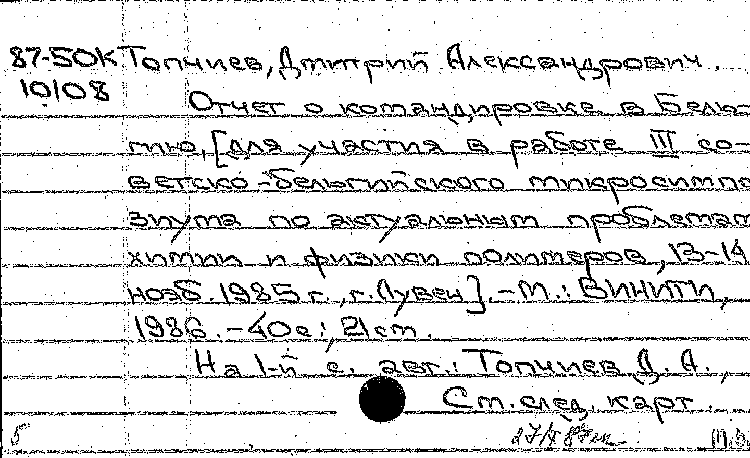 87-50К Топчиев, Дмитрий Александрович.
10108 Отчет о командировке в Бель-
гию, [для участия в работе III со-
ветско-бельгийского микросимпо
зиума по актуальным проблемам
химии и физики полимеров, 13-14
нояб. 1985 г., г. Лувен]. - М.: ВИНИТИ,
1986. - 40 с.; 21 см.
На 1-й с. авт.: Топчиев Д. А.,
См. след. карт.
5